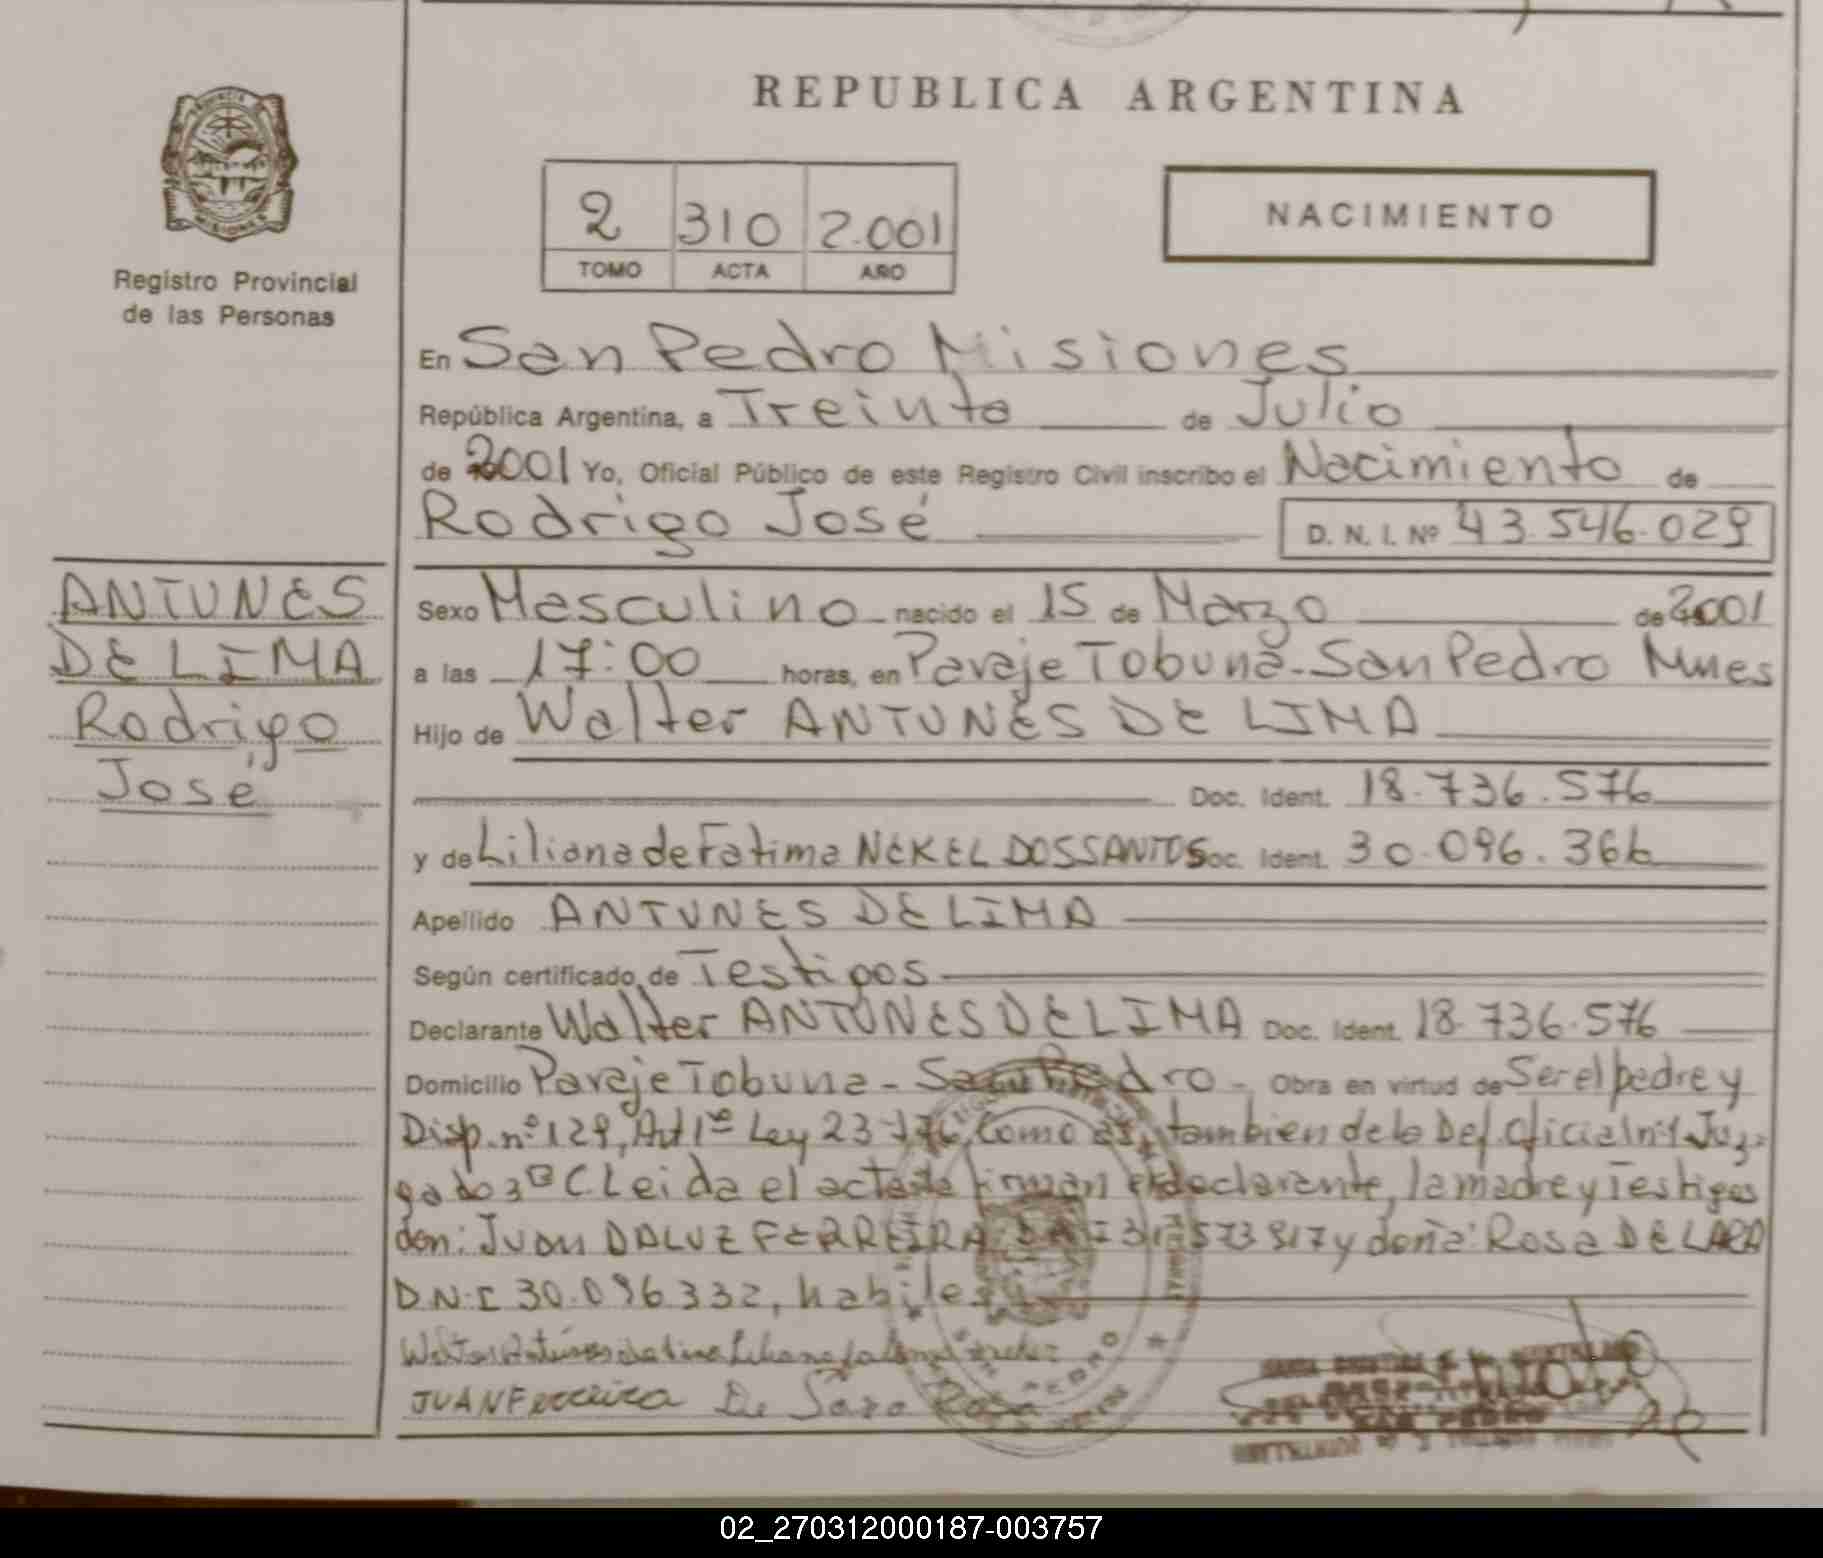 REPUBLICA ARGENTINA
PROVINCIA DE MISIONES
Registro Provincial
de las Personas
2 310 2.001
TOMO ACTA AÑO
NACIMIENTO
En San Pedro Misiones
República Argentina, a Treinta de Julio
de 2001 Yo, Oficial Público de este Registro Civil inscribo el Nacimiento de
Rodrigo José D. N. I. Nº 43.546.029
ANTUNES
DE LIMA
Rodrigo
José
Sexo Masculino nacido el 15 de Marzo de 2001
a las 17:00 horas, en Paraje Tobuna - San Pedro Mnes
Hijo de Walter ANTUNES DE LIMA
Doc. Ident. 18.736.576
y de Liliana de Fatima NEKEL DOS SANTOS Doc. Ident. 30.096.366
Apellido ANTUNES DE LIMA
Según certificado de Testigos
Declarante Walter ANTUNES DE LIMA Doc. Ident. 18.736.576
Domicilio Paraje Tobuna - San Pedro - Obra en virtud de Ser el padre y
Disp. nº 129, Art 1º Ley 23.776, Como así tambien de la Def. Oficial nº1 Juz-
gado 3º C. Leida el acta la firman el declarante, la madre y Testigos
don: Juan DALUZ FERREIRA DNI y doña: Rosa DE LARA
D.N.I 30.096.332, habiles
Walter Antunes de lima Liliana
JUAN Ferreira De Lara Rosa
SAN PEDRO
02_270312000187-003757